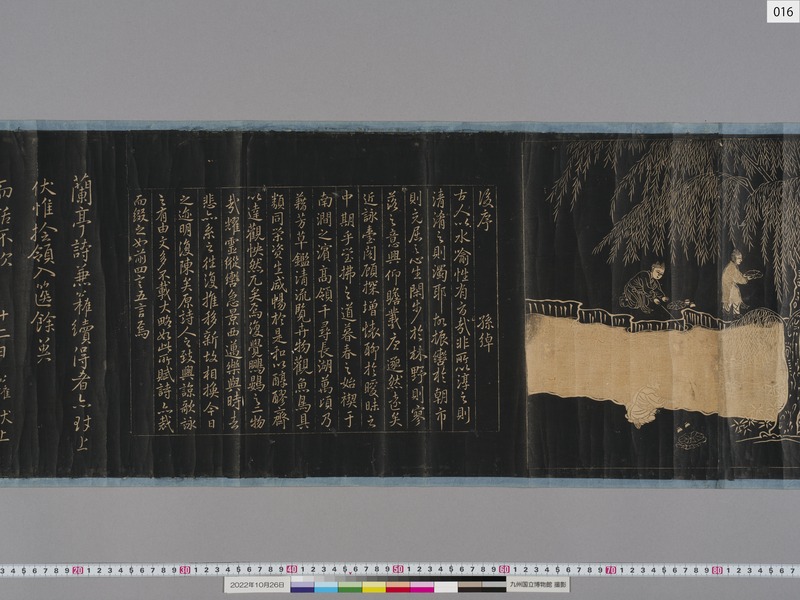 016
後序　孫綽
古人以水喻性有旨哉非所以渟之則
清淆之則濁耶故振轡於朝市
則充屈之心生閑步於林野則寥
落之意興仰瞻羲唐邈然遠矣
近詠臺閣顧探增懷聊於曖昧之
中期乎瑩拂之道暮春之始禊于
南澗之濱高嶺千尋長湖萬頃乃
藉芳草鑑清流覽卉物觀魚鳥具
類同榮資生咸暢於是和以醇醪齊
以達觀快然兀矣焉復覺鵬鷃之二物
哉耀靈縱轡急景西邁樂與時去
悲亦系之往復推移新故相換今日
之迹明復陳矣原詩人之致興諒歌詠
之有由文多不載大略如此所賦詩亦裁
而綴之如前四言五言焉
蘭亭詩兼 續得者亦對上
伏惟捡領入篋餘
不次 十二日
2022年10月26日
九州国立博物館 撮影